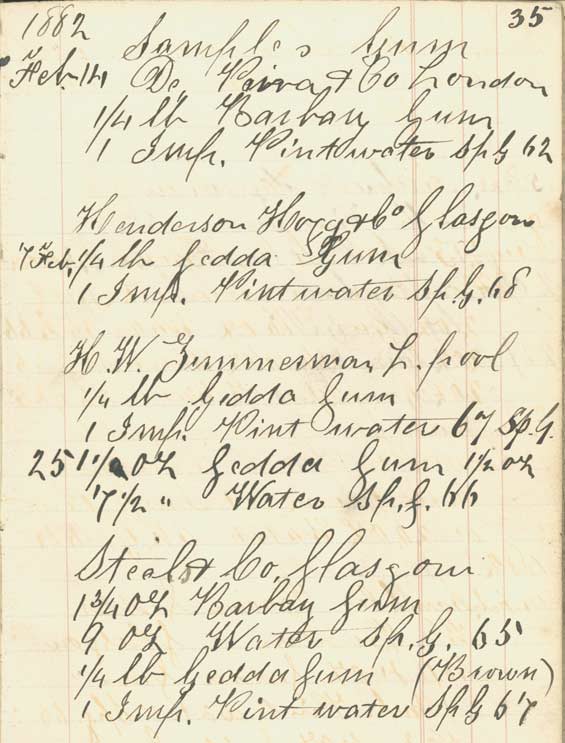 1882 35
Samples Gum
Feb. 14 De Paiva & Co London
1/4 lb Barbary Gum
1 Imp. Pint water Sp G 62
Henderson Hogg & Co Glasgow
7 Feb. 1/4 lb Gedda Gum
1 Imp. Pint water Sp. G. 68
H. W. Zimmerman L. pool
1/4 lb Gedda Gum
1 Imp. Pint water 67 Sp. G.
25 1 1/2 oz Gedda Gum 1 1/2 oz
7 1/2 " Water Sp. G. 66
& Co. Glasgow
1 3/4 oz Barbary Gum
9 oz Water Sp. G. 65
1/4 lb Gedda Gum (Brown)
1 Imp. Pint water Sp G 67